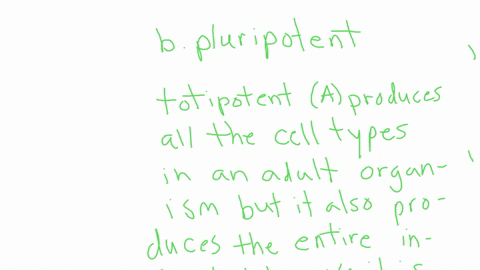 b. pluripotent
totipotent (A) produces
all the cell types
in an adult organ-
ism but it also pro-
duces the entire in-